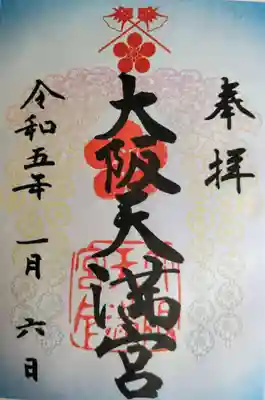 奉拝
大阪天満宮
令和五年一月六日